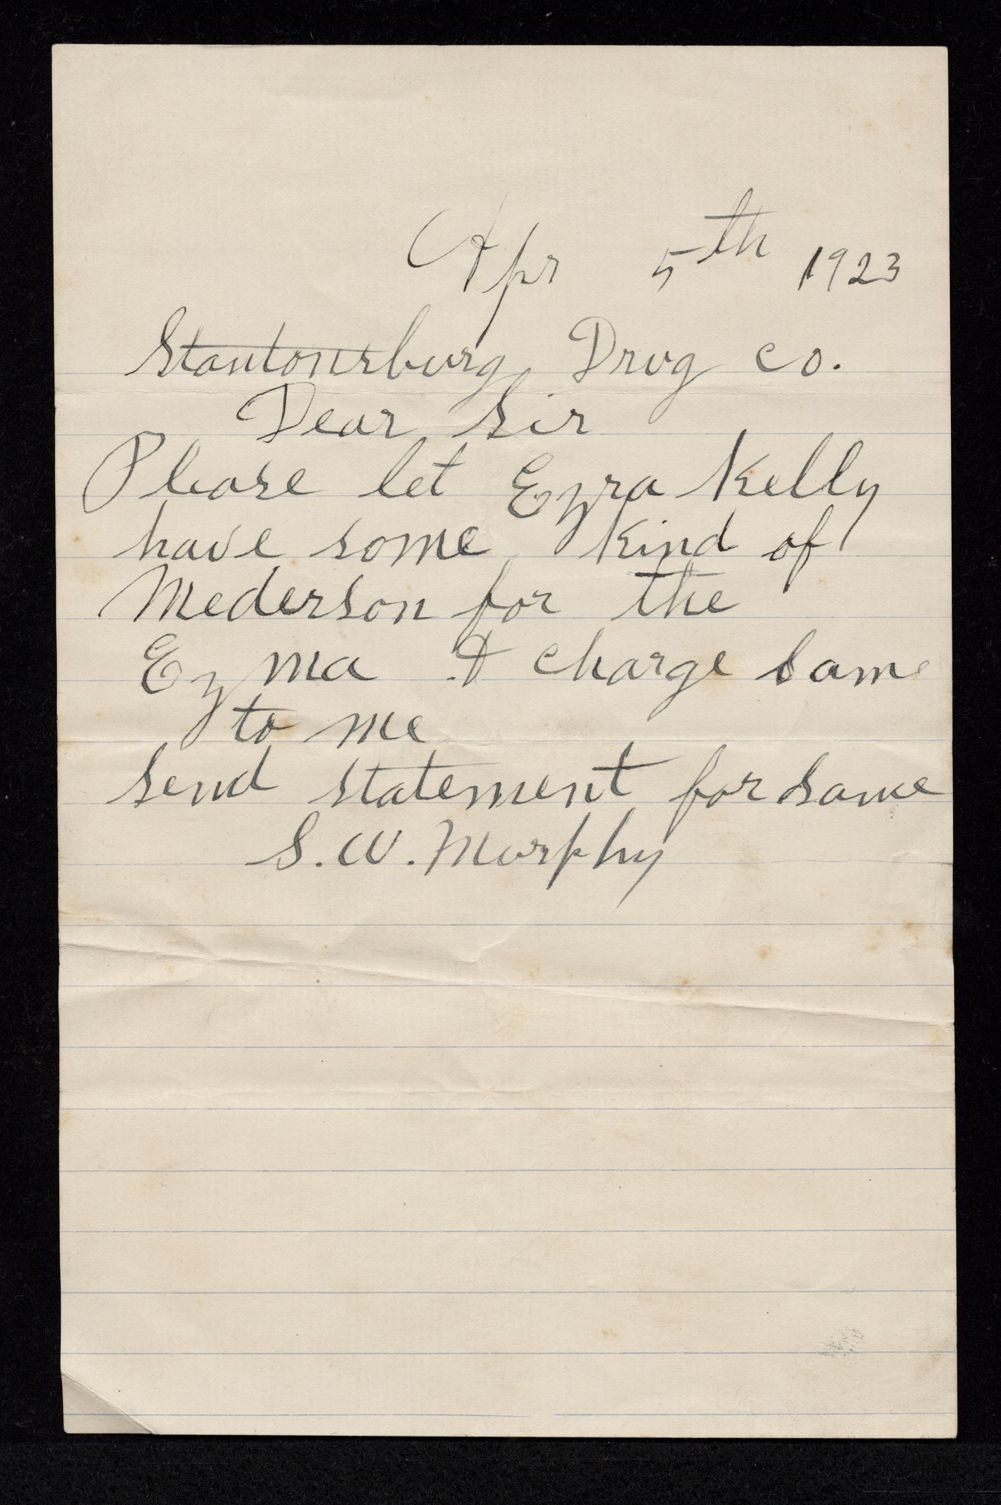 Apr 5th 1923
Stantonsburg Drug co.
Dear Sir
Please let Ezra Kelly
have some kind of
Mederson for the
Ezma & charge same
to me
send statement for same
S. W. Murphy